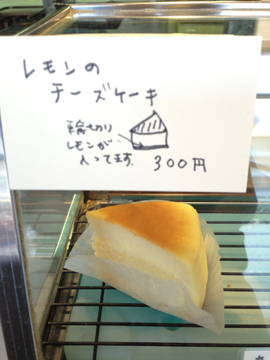 レモンの
チーズケーキ
輪切り
レモンが
入ってます.
300円